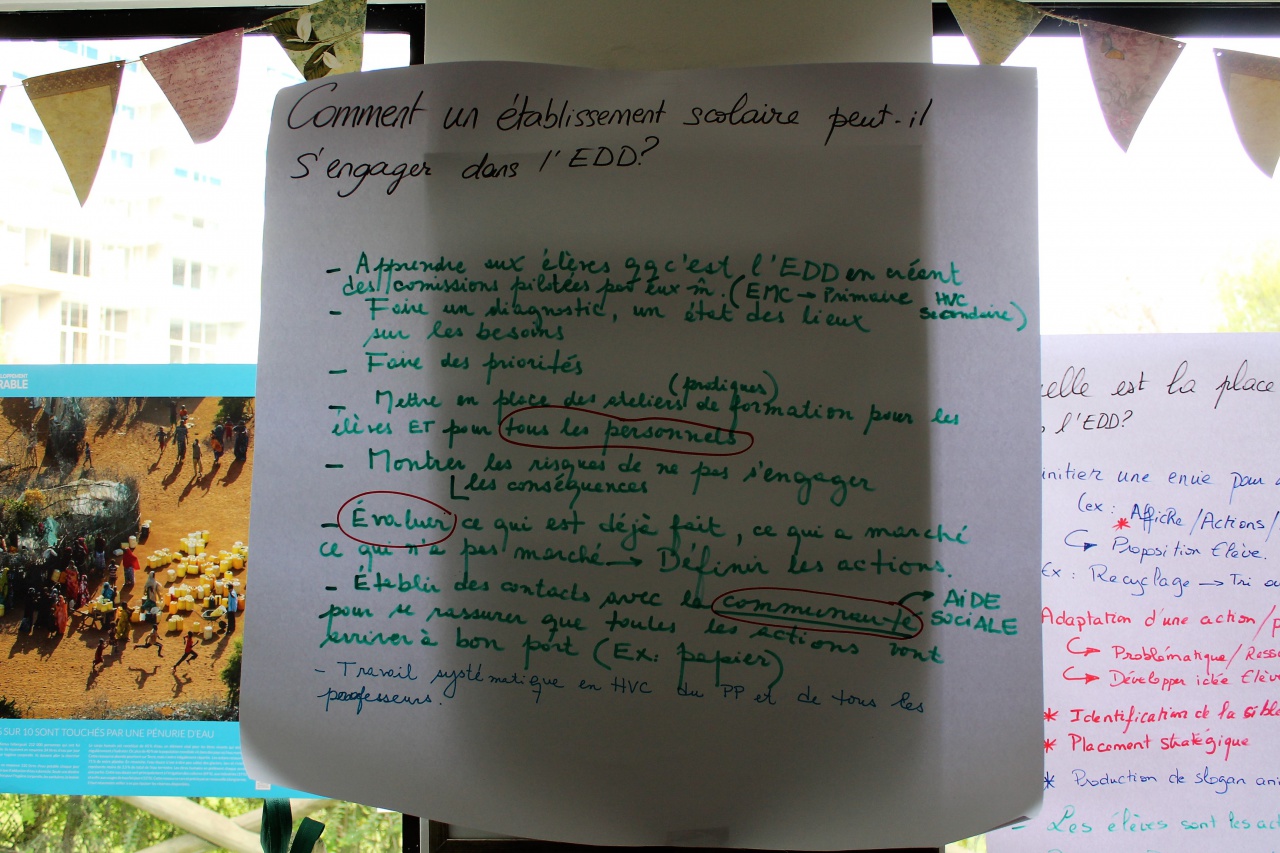 Comment un établissement scolaire peut-il
s'engager dans l'EDD?
- Apprendre aux élèves qq c'est l'EDD en créant
des comissions pilotées par eux m̂. (EMC → Primaire HVC
secondaire)
- Faire un diagnostic, un état des lieux
sur les besoins
- Faire des priorités
(pratiques)
- Mettre en place des ateliers de formation pour les
élèves ET pour tous les personnels
- Montrer les risques de ne pas s'engager
les conséquences
- Évaluer ce qui est déjà fait, ce qui a marché
ce qui n'a pas marché → Définir les actions.
- Établir des contacts avec la communauté → AIDE
SOCIALE
pour se rassurer que toutes les actions vont
arriver à bon port (Ex: papier)
- Travail systématique en HVC du PP et de tous les
professeurs.
RABLE
SUR 10 SONT TOUCHÉS PAR UNE PÉNURIE D'EAU
elle est la place
l'EDD?
initier une envie pour
(ex: Affiche / Actions /
* → Proposition Elève.
Ex: Recyclage → Tri
Adaptation d'une action /
→ Problématique / Resso
→ Développer idée Elève
* Identification de la cible
* Placement stratégique
* Production de slogan
- Les élèves sont les act